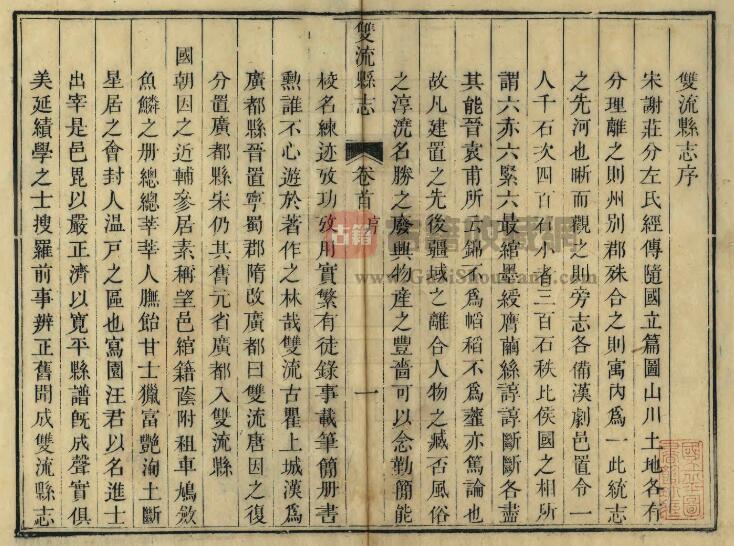 雙流縣志序
宋謝莊分左氏經傳隨國立篇圖山川土地各有
分理離之則州別郡殊合之則寓內為一此統志
之先河也晰而觀之則旁志各備漢劇邑置令一
人千石次四百石小者三百石秩比侯國之相所
謂六赤六緊六最綰墨綬膺繭絲諄諄斷斷各盡
其能晉袁甫所云錦不為幍稻不為虀亦篤論也
故凡建置之先後疆域之離合人物之臧否風俗
之淳澆名勝之廢興物產之豐嗇可以念勤簡能
雙流縣志 卷首 序 一
校名練迹攷功效用實繁有徒錄事載筆簡册書
勲誰不心遊於著作之林哉雙流古瞿上城漢為
廣都縣晉置寧蜀郡隋改廣都曰雙流唐因之復
分置廣都縣宋仍其舊元省廣都入雙流縣
國朝因之近輔參居素稱望邑綰籍蔭附租車鳩斂
魚鱗之册總總莘莘人膴飴甘士獵富艷洵土斷
星居之會封人溫戸之區也寫園汪君以名進士
出宰是邑毘以嚴正濟以寬平縣譜旣成聲實俱
美延績學之士搜羅前事辨正舊聞成雙流縣志
古籍
www.GuJiShuWang.com